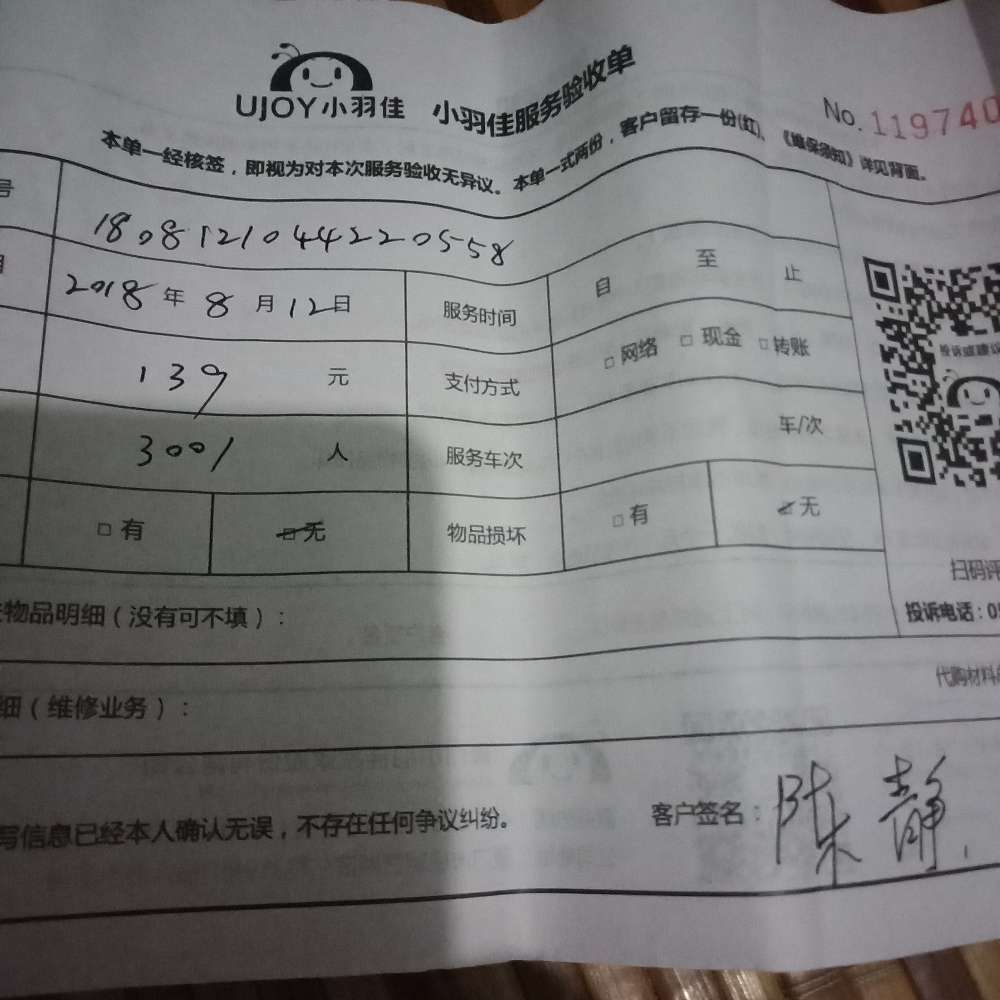 UJOY小羽佳 小羽佳服务验收单
No. 119740
本单一经核签，即视为对本次服务验收无异议。本单一式两份，客户留存一份(红)、《维保须知》详见背面。
号 18081210442220558
2018 年 8 月 12 日 服务时间 自 至 止
139 元 支付方式 □网络 □现金 □转账
3001 人 服务车次 车/次
□有 □无 物品损坏 □有 无
物品明细（没有可不填）：
扫码评
投诉电话：05
细（维修业务）：
代购材料
写信息已经本人确认无误，不存在任何争议纠纷。 客户签名：陈静